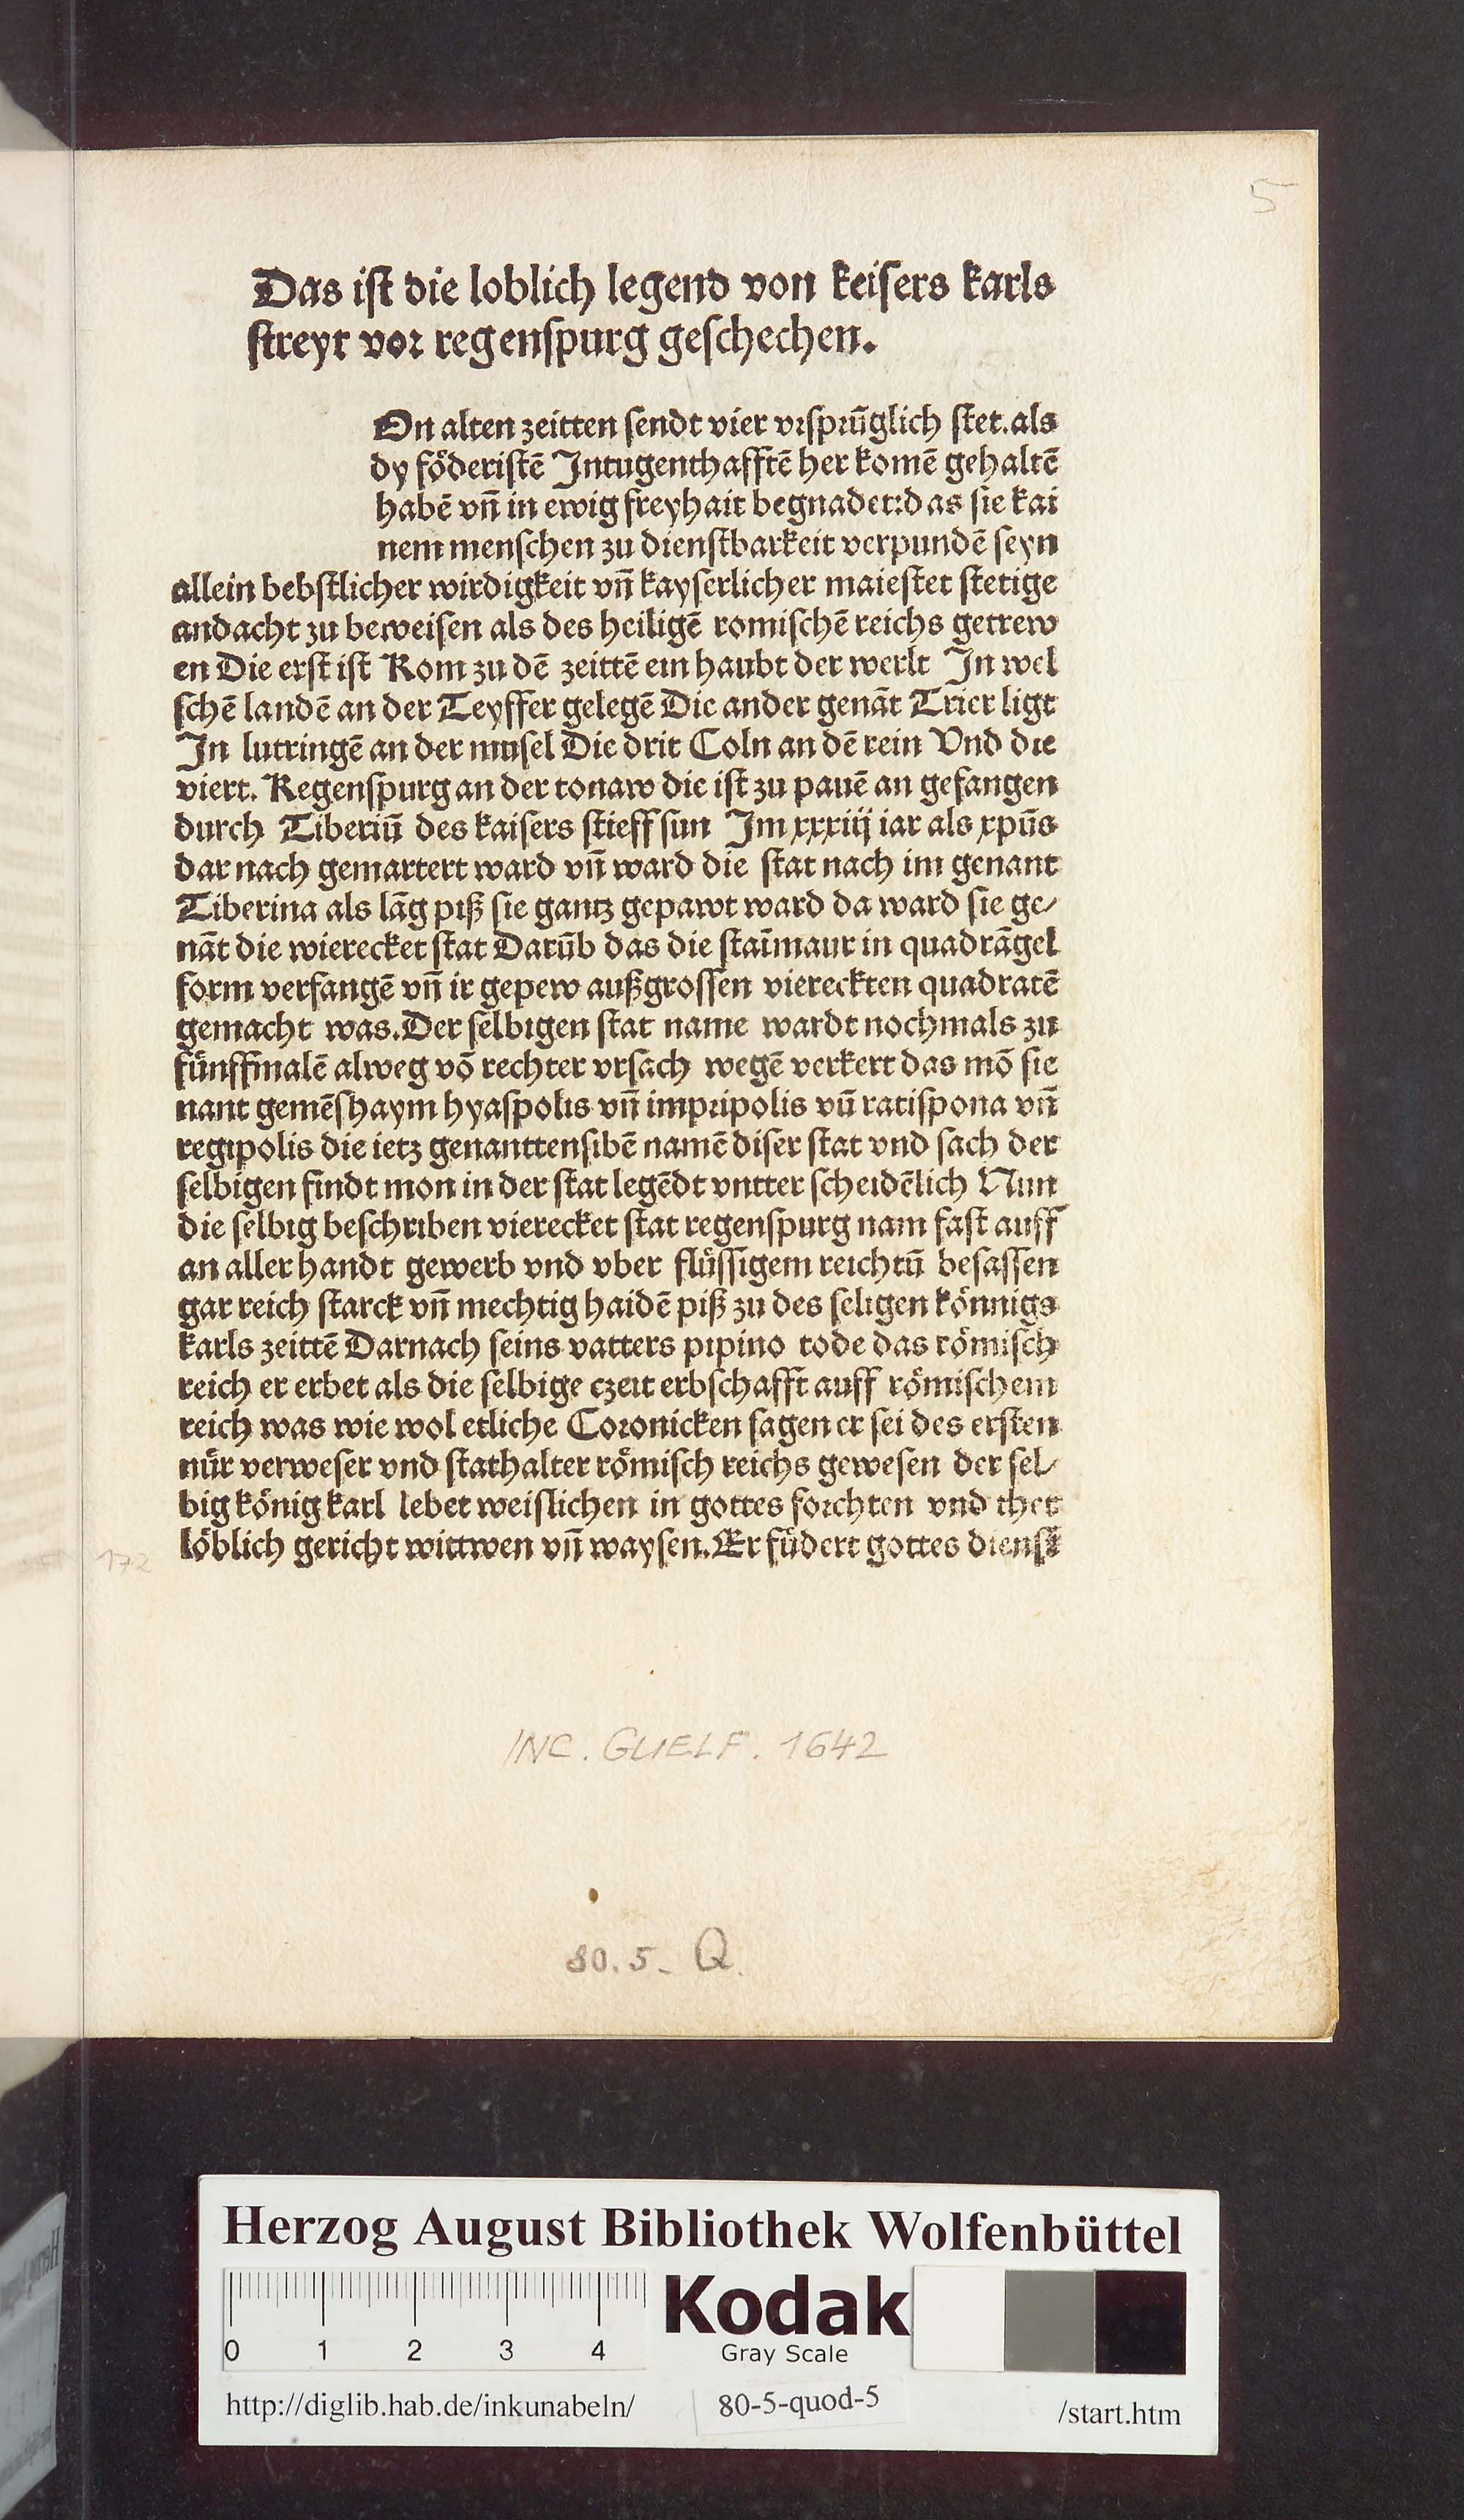 5
Das iſt die loblich legend von keiſers karls
ſtreyt vor regenſpurg geſchechen.
On alten zeitten ſendt vier vrſprūglich ſtet. als
dy föderiſtē Intugenthafftē her komē gehaltē
habē vn̄ in ewig freyhait begnadet: das ſie kai
nem menſchen zu dienſtbarkeit verpundē ſeyn
allein bebſtlicher wirdigkeit vn̄ kayſerlicher maieſtet ſtetige
andacht zu beweiſen als des heiligē romiſchē reichs getrew
en Die erſt iſt Rom zu dē zeittē ein haubt der werlt In wel
ſchē landē an der Teyffer gelegē Die ander genāt Trier ligt
In lutringē an der muſel Die drit Coln an dē rein Vnd die
viert. Regenſpurg an der tonaw die iſt zu pauē an gefangen
durch Tiberiū des kaiſers ſtieff ſun Im xxxiij iar als xpūs
dar nach gemartert ward vn̄ ward die ſtat nach im genant
Tiberina als lāg piß ſie gantz gepawt ward da ward ſie ge⸗
nāt die wierecket ſtat Darūb das die ſtaīmaur in quadrāgel
form verfangē vn̄ ir gepew auß groſſen viereckten quadratē
gemacht was. Der ſelbigen ſtat name wardt nochmals zu
fünffmalē alweg vō rechter vrſach wegē verkert das mō ſie
nant gemēſhaym hyaſpolis vn̄ impripolis vn̄ ratiſpona vn̄
regipolis die ietz genanttenſibē namē diſer ſtat vnd ſach der
ſelbigen findt mon in der ſtat legēdt vntter ſcheidēlich Nun
die ſelbig beſchriben vierecket ſtat regenſpurg nam faſt auff
an aller handt gewerb vnd vber flüſſigem reichtū beſaſſen
gar reich ſtarck vn̄ mechtig haidē piß zu des ſeligen könnigs
karls zeittē Darnach ſeins vatters pipino tode das römiſch
reich er erbet als die ſelbige czeit erbſchafft auff römiſchem
reich was wie wol etliche Coronicken ſagen er ſei des erſten
nür verweſer vnd ſtathalter römiſch reichs geweſen der ſel⸗
big könig karl lebet weiſlichen in gottes forchten vnd thet
löblich gericht wittwen vn̄ wayſen. Er füdert gottes dienſt
172
INC. GUELF. 1642
80.5. Q.
Herzog August Bibliothek Wolfenbüttel
0 1 2 3 4
Kodak
Gray Scale
http://diglib.hab.de/inkunabeln/ 80-5-quod-5 /start.htm